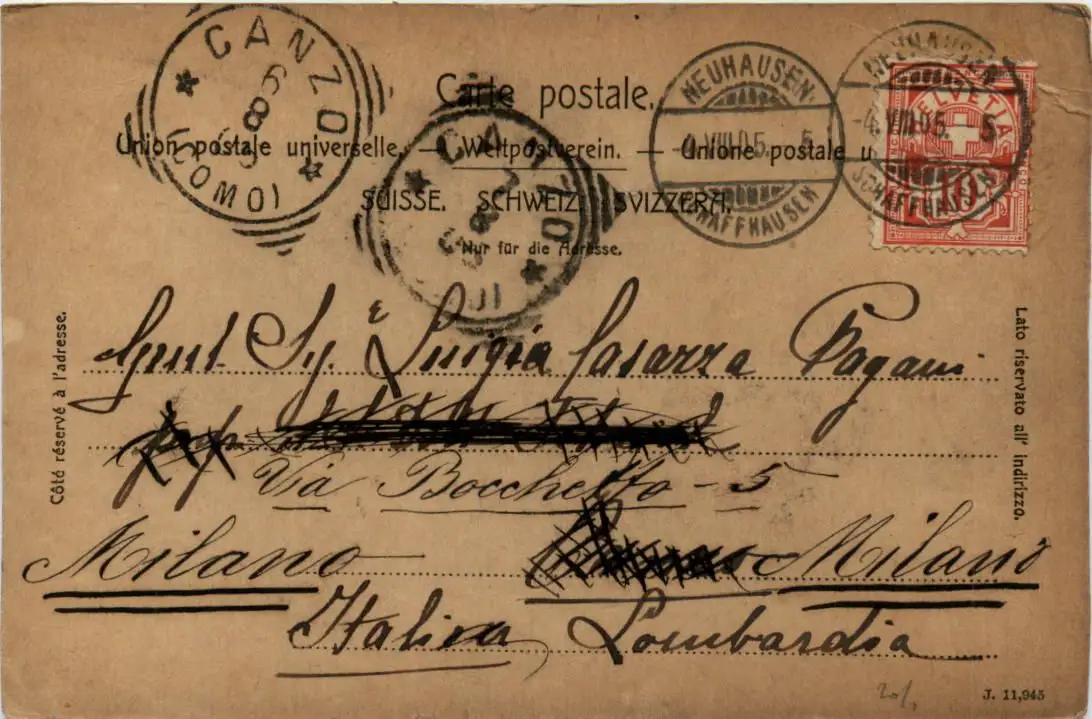 CANZO
6
8
(COMO)
Carte postale.
NEUHAUSEN.
-4.VIII.05. 5
SCHAFFHAUSEN
NEUHAUSEN.
-4.VIII.05. 5
SCHAFFHAUSEN
HELVETIA
10
Union postale universelle. — Weltpostverein. — Unione postale u
SUISSE. SCHWEIZ. SVIZZERA.
Nur für die Adresse.
CANZO
Côté réservé à l'adresse.
Lato riservato all' indirizzo.
Gent Sig. Luigia Casazza Pagani
Via Bocchetto - 5
Milano Milano
Italia Lombardia
J. 11,945